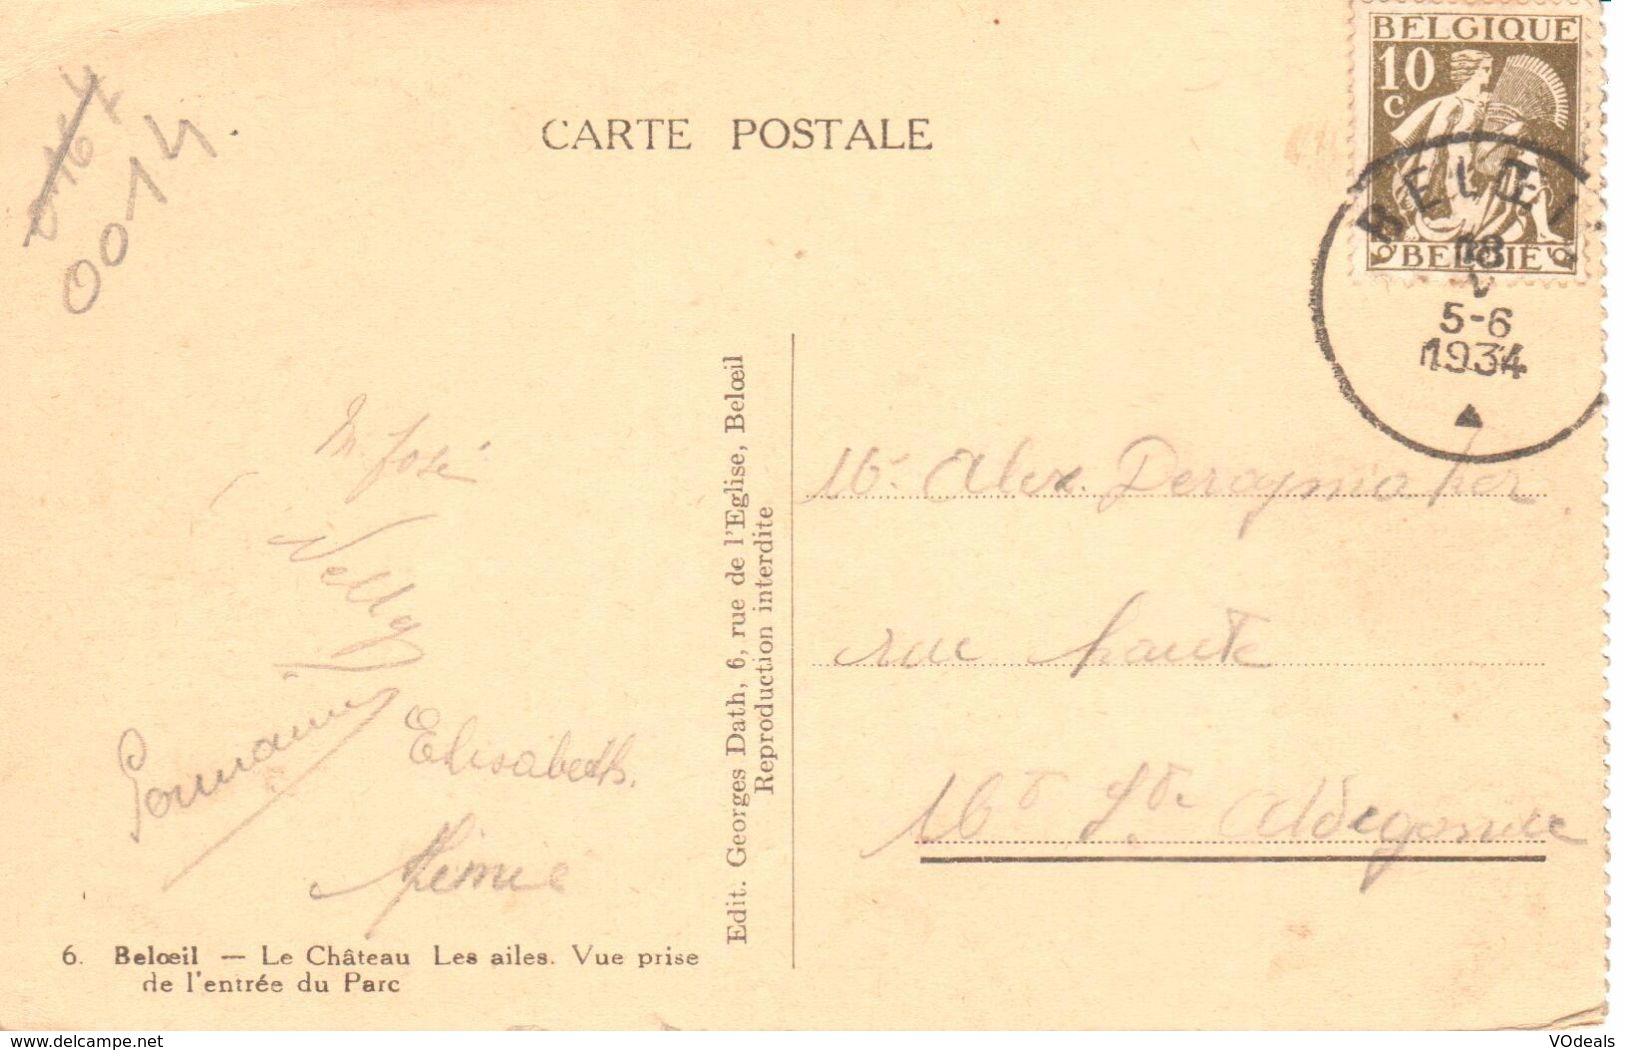 BELGIQUE
10
c
BELGIË
CARTE POSTALE
0014
BELŒI
18
5-6
1934
M. José
Nelly
Germaine
Elisabeth.
Mimie
Edit. Georges Dath, 6, rue de l'Eglise, Belœil
Reproduction interdite
Alex.
rue haute
Mt Ste Aldegonde
6. Belœil — Le Château Les ailes. Vue prise
de l'entrée du Parc
www.delcampe.net
VOdeals